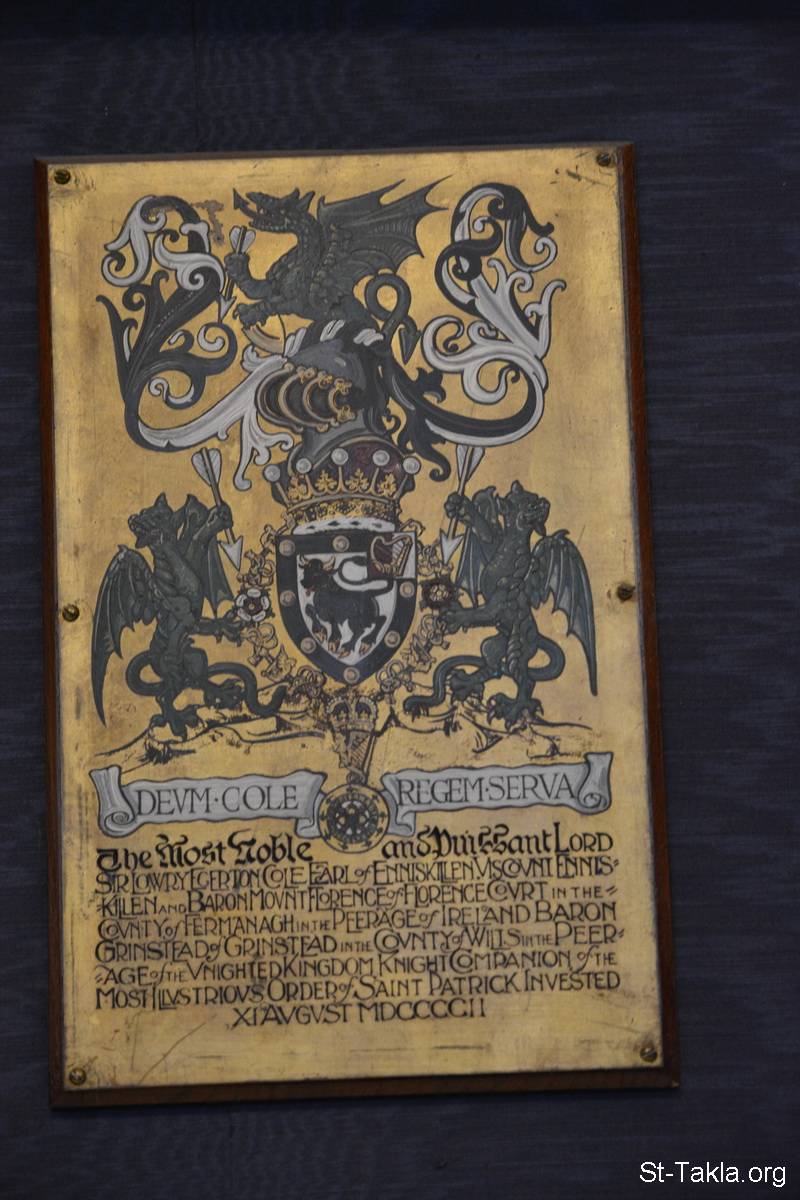 DEVM·COLE REGEM·SERVA
The Most Noble and Puissant LORD
SIR LOWRY EGERTON COLE EARL of ENNISKILLEN VISCOVNT ENNIS-
-KILLEN AND BARON MOVNT FLORENCE of FLORENCE COVRT IN THE-
COVNTY of FERMANAGH IN THE PEERAGE of IRELAND BARON
GRINSTEAD of GRINSTEAD IN THE COVNTY of WILTS IN THE PEER-
-AGE of THE VNIGHTED KINGDOM KNIGHT COMPANION of THE
MOST ILLVSTRIOVS ORDER of SAINT PATRICK INVESTED
XI AVGVST MDCCCCII
St-Takla.org